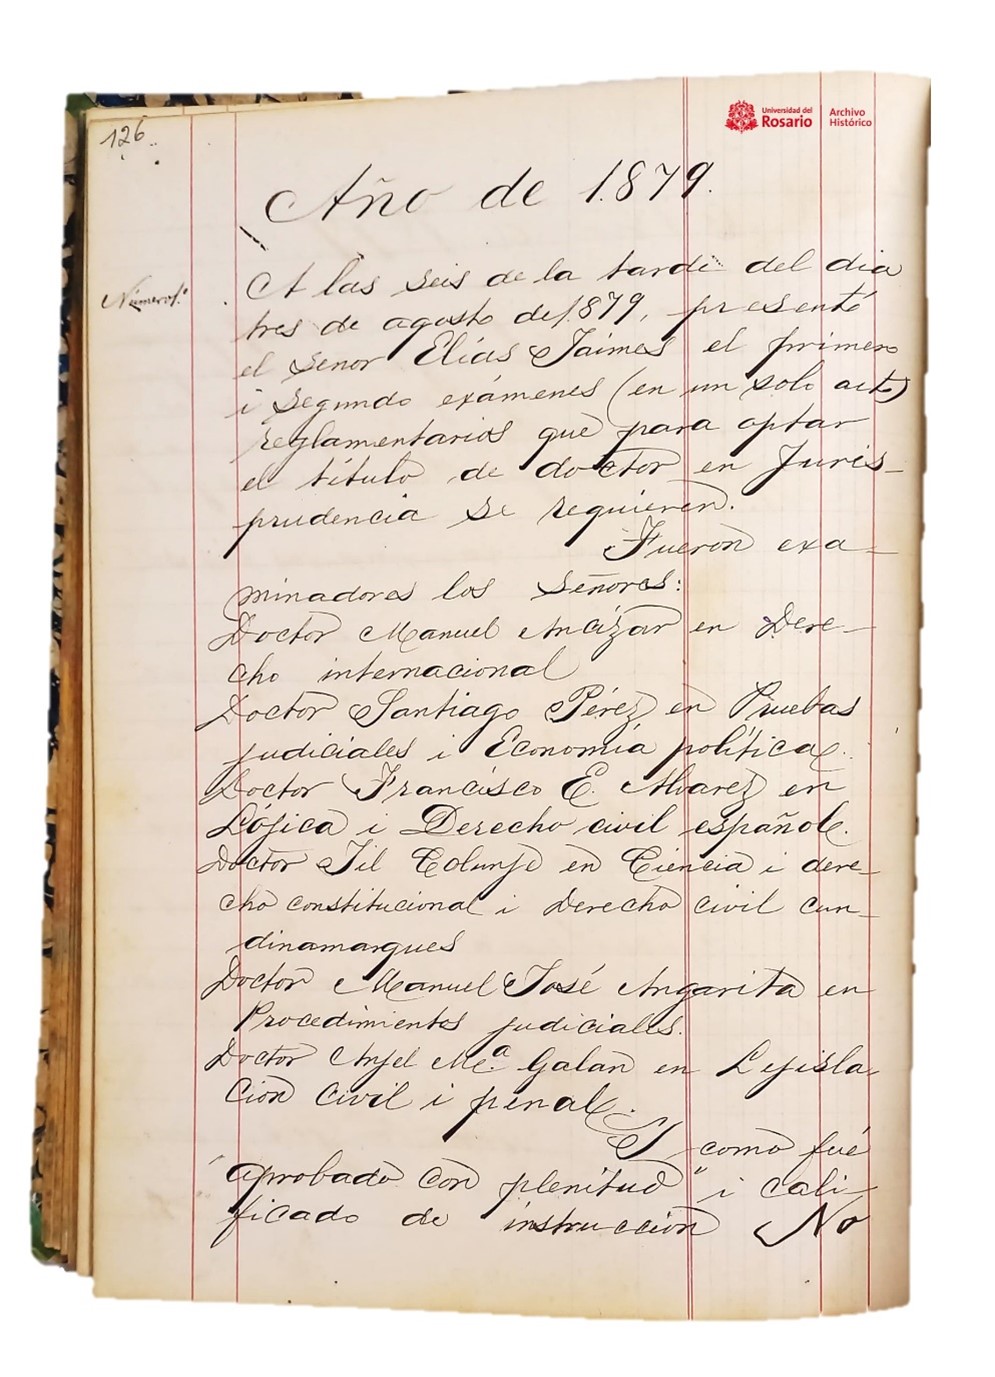 126
Universidad del
Rosario
Archivo
Histórico
Año de 1879.
Número 1.º
A las seis de la tarde del dia
tres de agosto de 1879, presentó
el señor Elías Jaimes el primero
i segundo exámenes (en un solo acto)
reglamentarios que para optar
el título de doctor en Juris-
prudencia se requieren.
Fueron exa-
minadores los señores:
Doctor Manuel Ancízar en Dere-
cho internacional
Doctor Santiago Pérez en Pruebas
judiciales i Economía política.
Doctor Francisco E. Alvarez en
Lójica i Derecho civil español.
Doctor Jil Colunje en Ciencia i dere-
cho constitucional i Derecho civil cun-
dinamarques
Doctor Manuel José Angarita en
Procedimientos judiciales.
Doctor Anjel M.ª Galan en Lejisla-
cion civil i penal.
I como fué
"aprobado con plenitud" i cali-
ficado de instruccion No